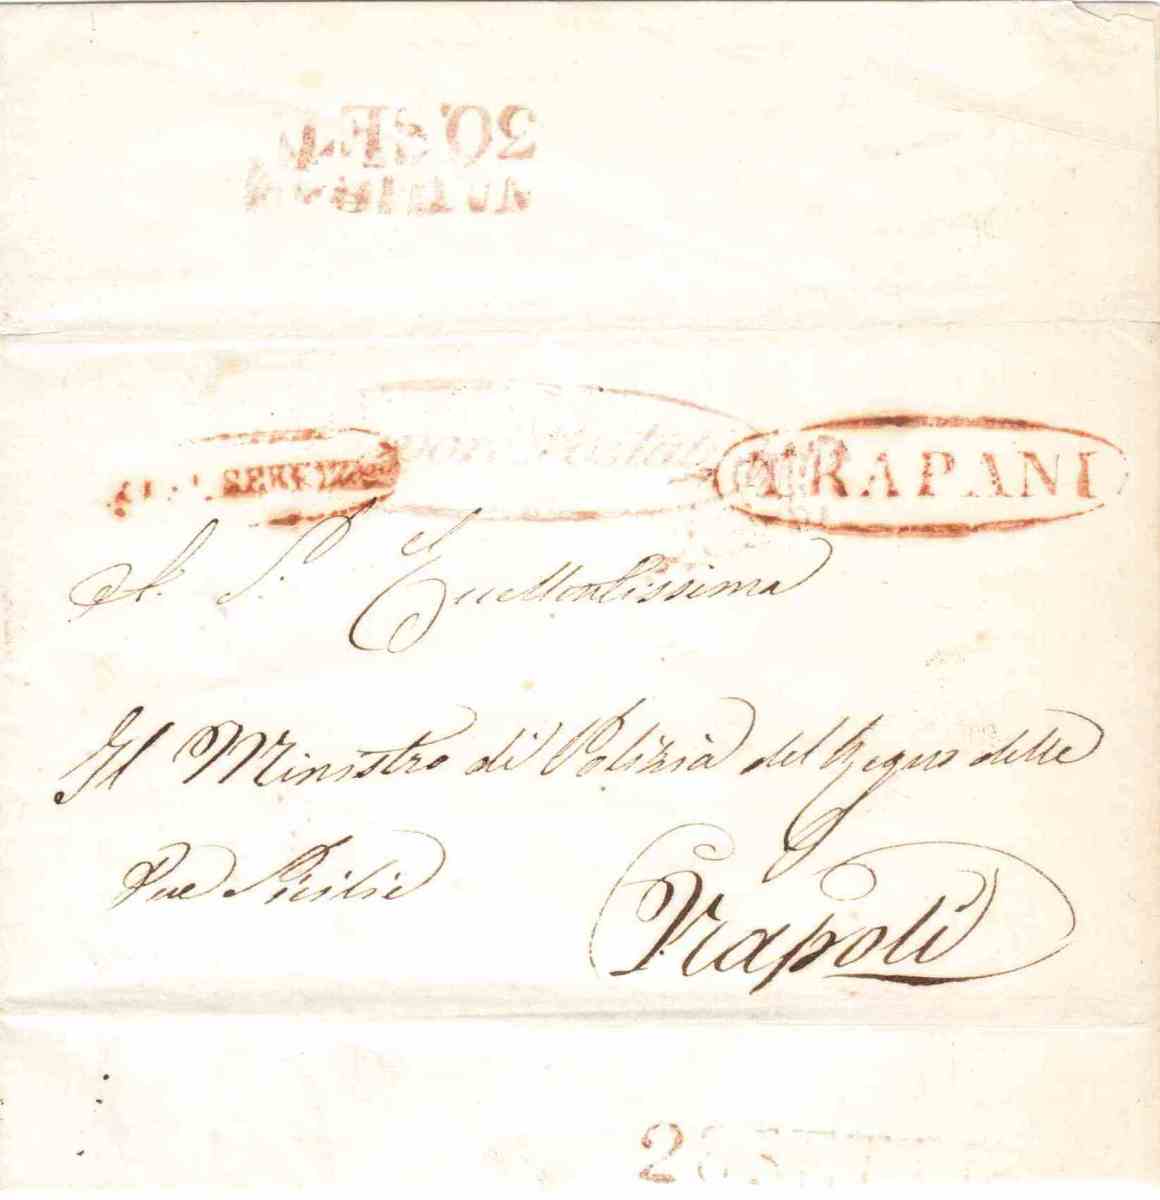 20 SET
SERVIZIO
TRAPANI
A. S. Eccellentissima
Il Ministro di Polizia del Regno delle
Due Sicilie
Napoli
28